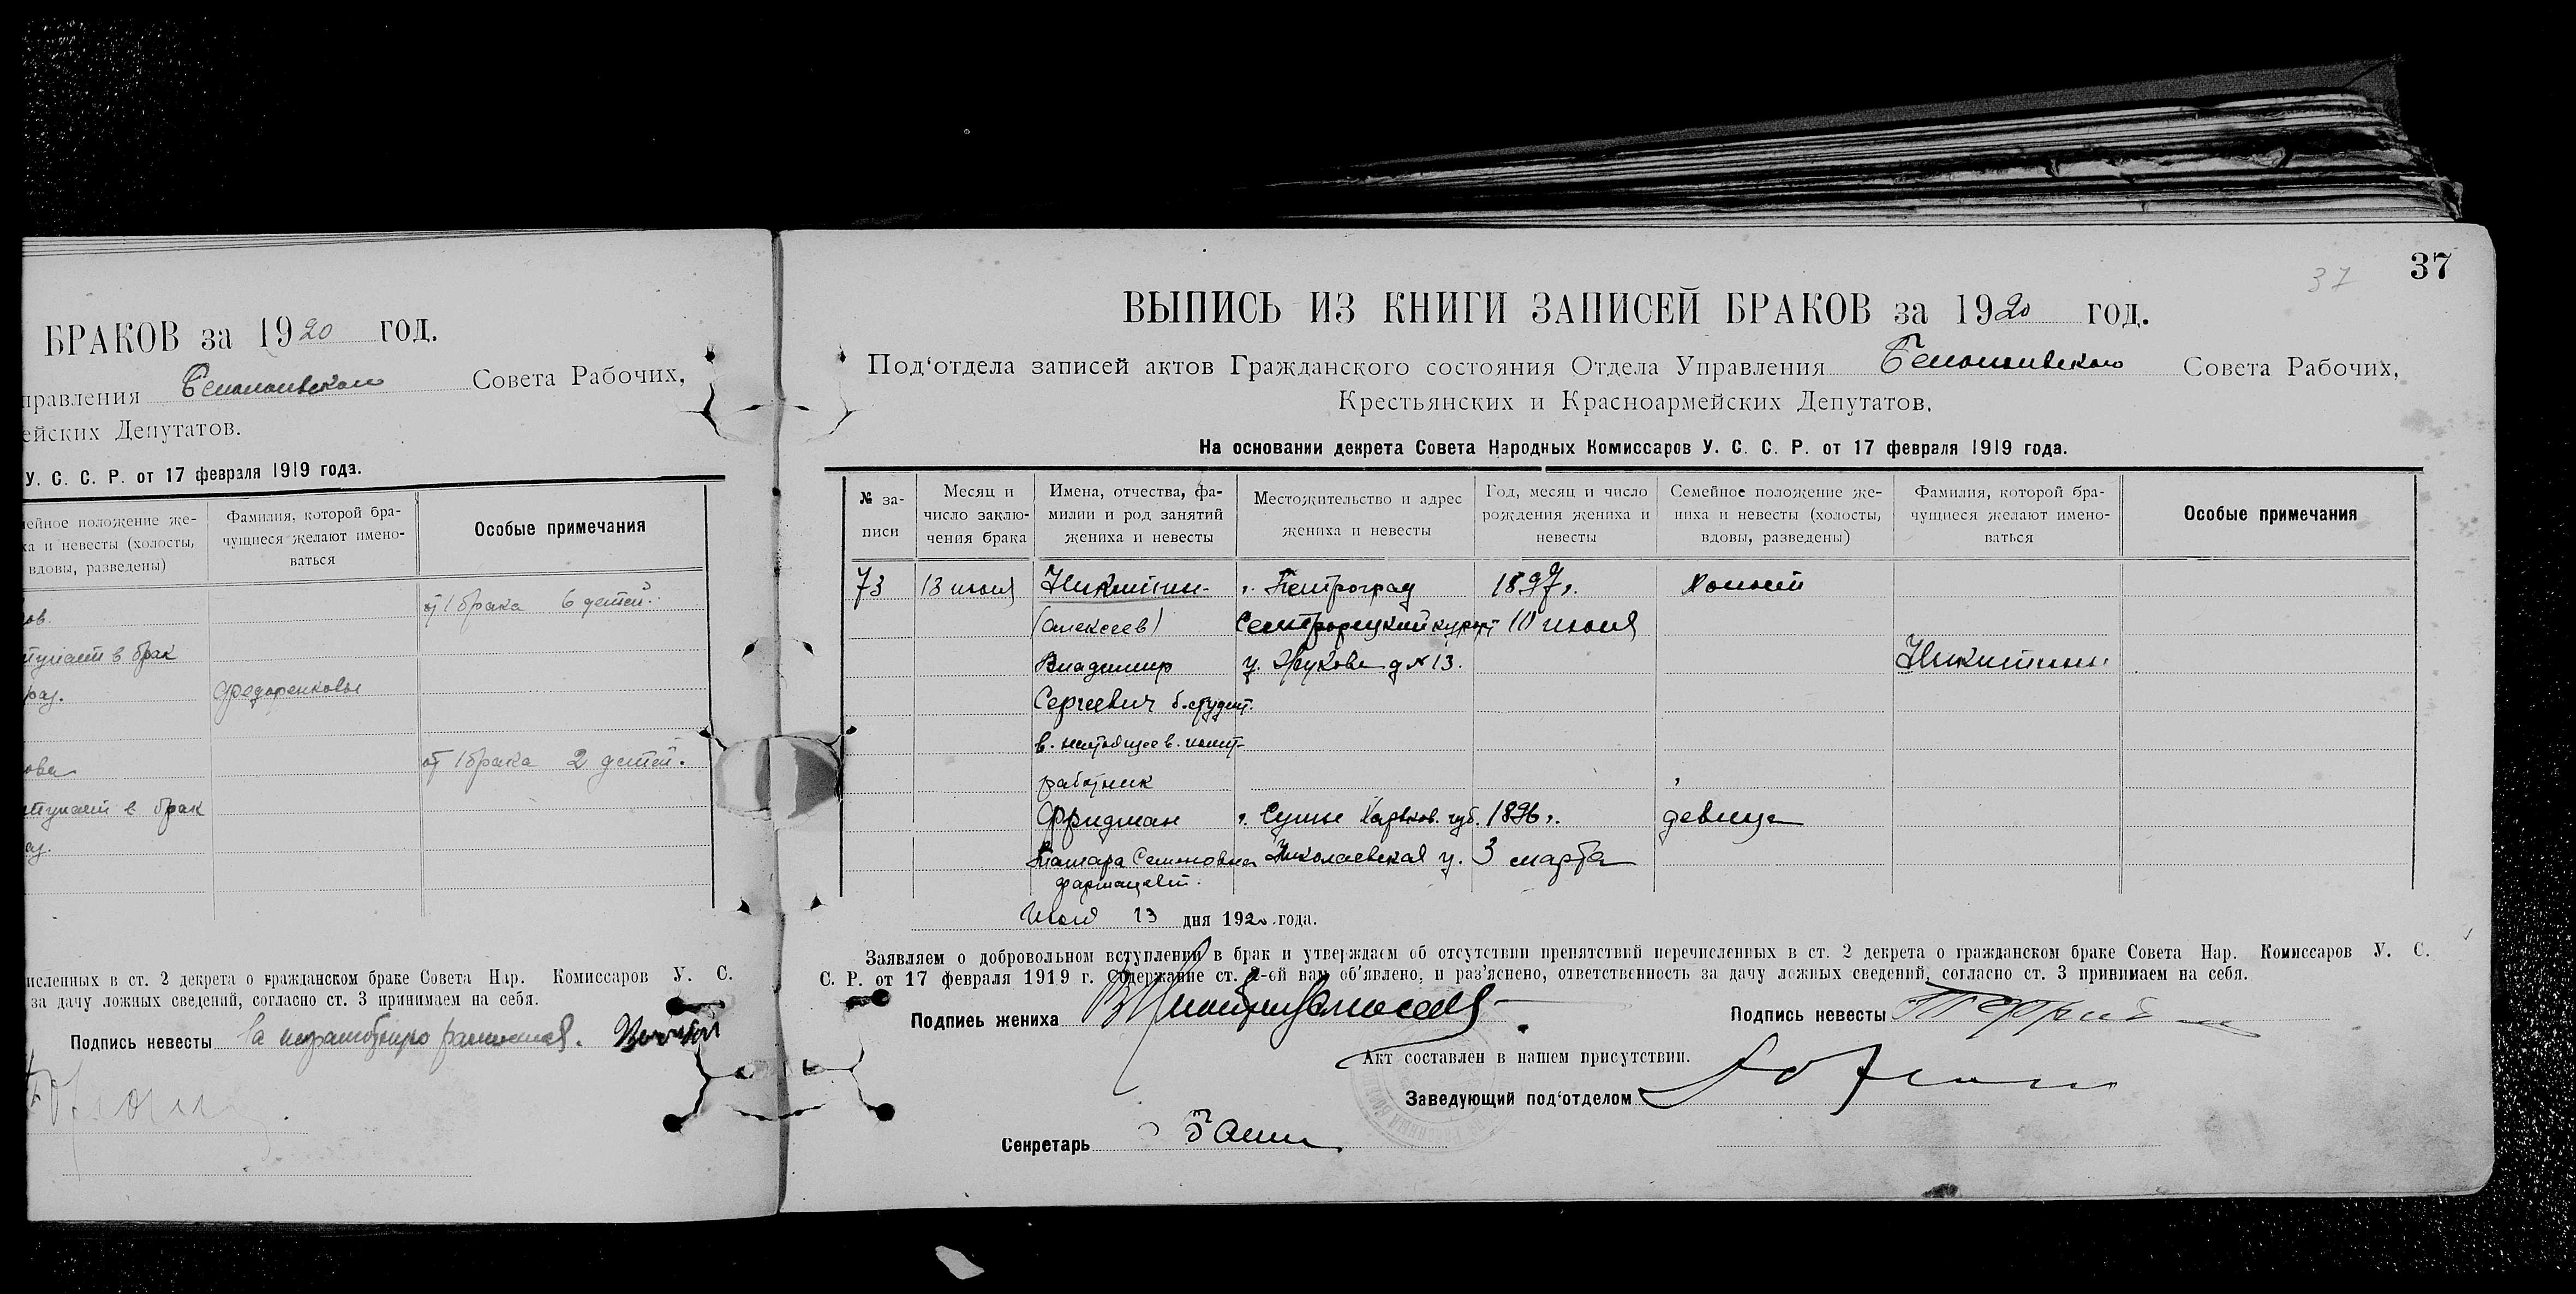 БРАКОВ за 1920 год.
правления Беполовского Совета Рабочих,
ейских Депутатов.
У. С. С. Р. от 17 февраля 1919 года.
мейное положение же-
ха и невесты (холосты,
вдовы, разведены)
Фамилия, которой бра-
чущиеся желают имено-
ваться
Особые примечания
ов.
от 1 брака 6 детей.
тупает в брак
раз.
Федоренковы
ова
от 1 брака 2 детей.
тупает в брак
аз.
исленных в ст. 2 декрета о гражданском браке Совета Нар. Комиссаров У. С.
за дачу ложных сведений, согласно ст. 3 принимаем на себя.
Подпись невесты За неграмотную
37
37
ВЫПИСЬ ИЗ КНИГИ ЗАПИСЕЙ БРАКОВ за 1920 год.
Под‘отдела записей актов Гражданского состояния Отдела Управления Совета Рабочих,
Крестьянских и Красноармейских Депутатов.
На основании декрета Совета Народных Комиссаров У. С. С. Р. от 17 февраля 1919 года.
№ за-
писи
Месяц и
число заклю-
чения брака
Имена, отчества, фа-
милии и род занятий
жениха и невесты
Местожительство и адрес
жениха и невесты
Год, месяц и число
рождения жениха и
невесты
Семейное положение же-
ниха и невесты (холосты,
вдовы, разведены)
Фамилия, которой бра-
чущиеся желают имено-
ваться
Особые примечания
73 13 июля Никитин- г. Петроград 1897г. холост
(Алексеев) Сестрорецкий курорт 10 июля
Владимир у. Жукова д № 13. Никитины
Сергеевич б. студент.
в. настоящее в. полит-
работник
Фридман г. Сумы Харьков. губ. 1896г. девица
Тамара Семеновна Николаевская у. 3 марта
фармацевт.
Июля 13 дня 1920 года.
Заявляем о добровольном вступлении в брак и утверждаем об отсутствии препятствий перечисленных в ст. 2 декрета о гражданском браке Совета Нар. Комиссаров У. С.
С. Р. от 17 февраля 1919 г. Содержание ст. 2-ой нам об‘явлено, и раз‘яснено, ответственность за дачу ложных сведений, согласно ст. 3 принимаем на себя.
Подпись жениха
Подпись невесты
Акт составлен в нашем присутствии.
Заведующий под‘отделом
Секретарь